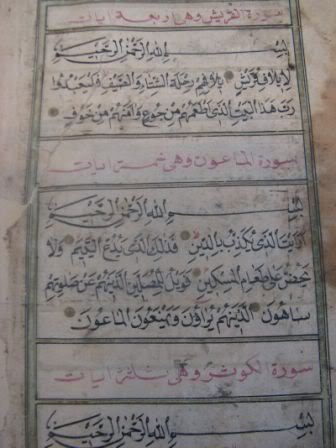 سورة القريش وهي اربعة ايات
بسم الله الرحمن الرحيم
لايلاف قريش ايلافهم رحلة الشتاء والصيف فليعبدوا
رب هذا البيت الذى اطعمهم من جوع وامنهم من خوف
سورة الماعون وهي خمسة ايات
بسم الله الرحمن الرحيم
ارايت الذى يكذب بالدين فذلك الذى يدع اليتيم ولا
يحض على طعام المسكين فويل للمصلين الذينهم عن صلوتهم
ساهون الذينهم يراؤن ويمنعون الماعون
سورة الكوثر وهي ثلثة ايات
بسم الله الرحمن الرحيم